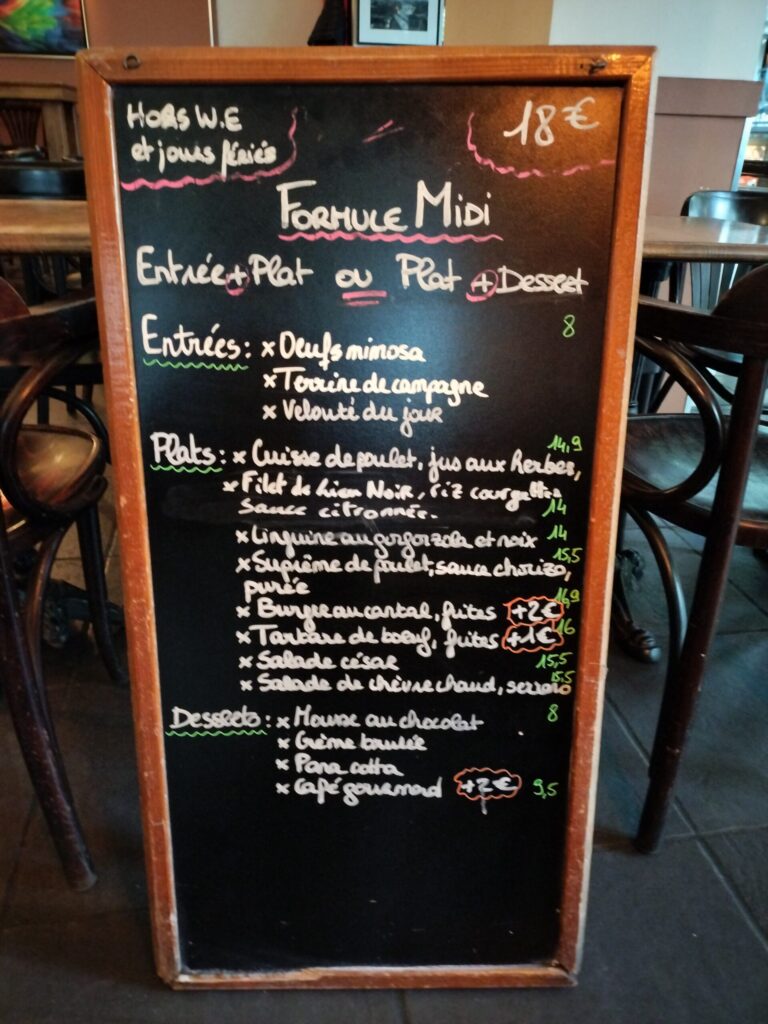 HORS W.E
et jours fériés
18€
FORMULE MIDI
Entrée + Plat ou Plat + Dessert
8
Entrées : x Oeufs mimosa
x Terrine de campagne
x Velouté du jour
Plats : x Cuisse de poulet, jus aux herbes, 14,9
x Filet de lieu Noir, riz courgettes
sauce citronnée. 14
x Linguine au gorgonzola et noix 14
x Suprême de poulet, sauce chorizo, 15,5
purée
x Burger au cantal, frites +2€ 16,9
x Tartare de bœuf, frites +1€ 16
x Salade césar 15,5
x Salade de chèvre chaud, serrano 15,5
Desserts : x Mousse au chocolat 8
x Crème brulée
x Pana cotta
x Café gourmand +2€ 9,5